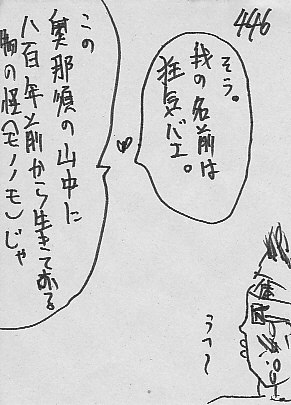 446
そう。
我の名前は
狂気バエ。
この
奥那須の山中に
八百年前から生きておる
胸の怪(モノノモ)じゃ
うっ〜